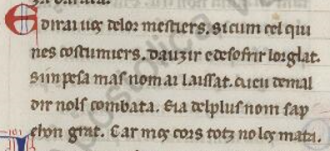 E dirai uos delor mestiers. si cum cel qui
nes costumiers. dauzir e desofrir lor glat.
Si in pesa mas nom ai laissat. cu eu demal
dir nols combata. Eia del plus nom sap
e bon grat. Car mos cors totz no los mata.